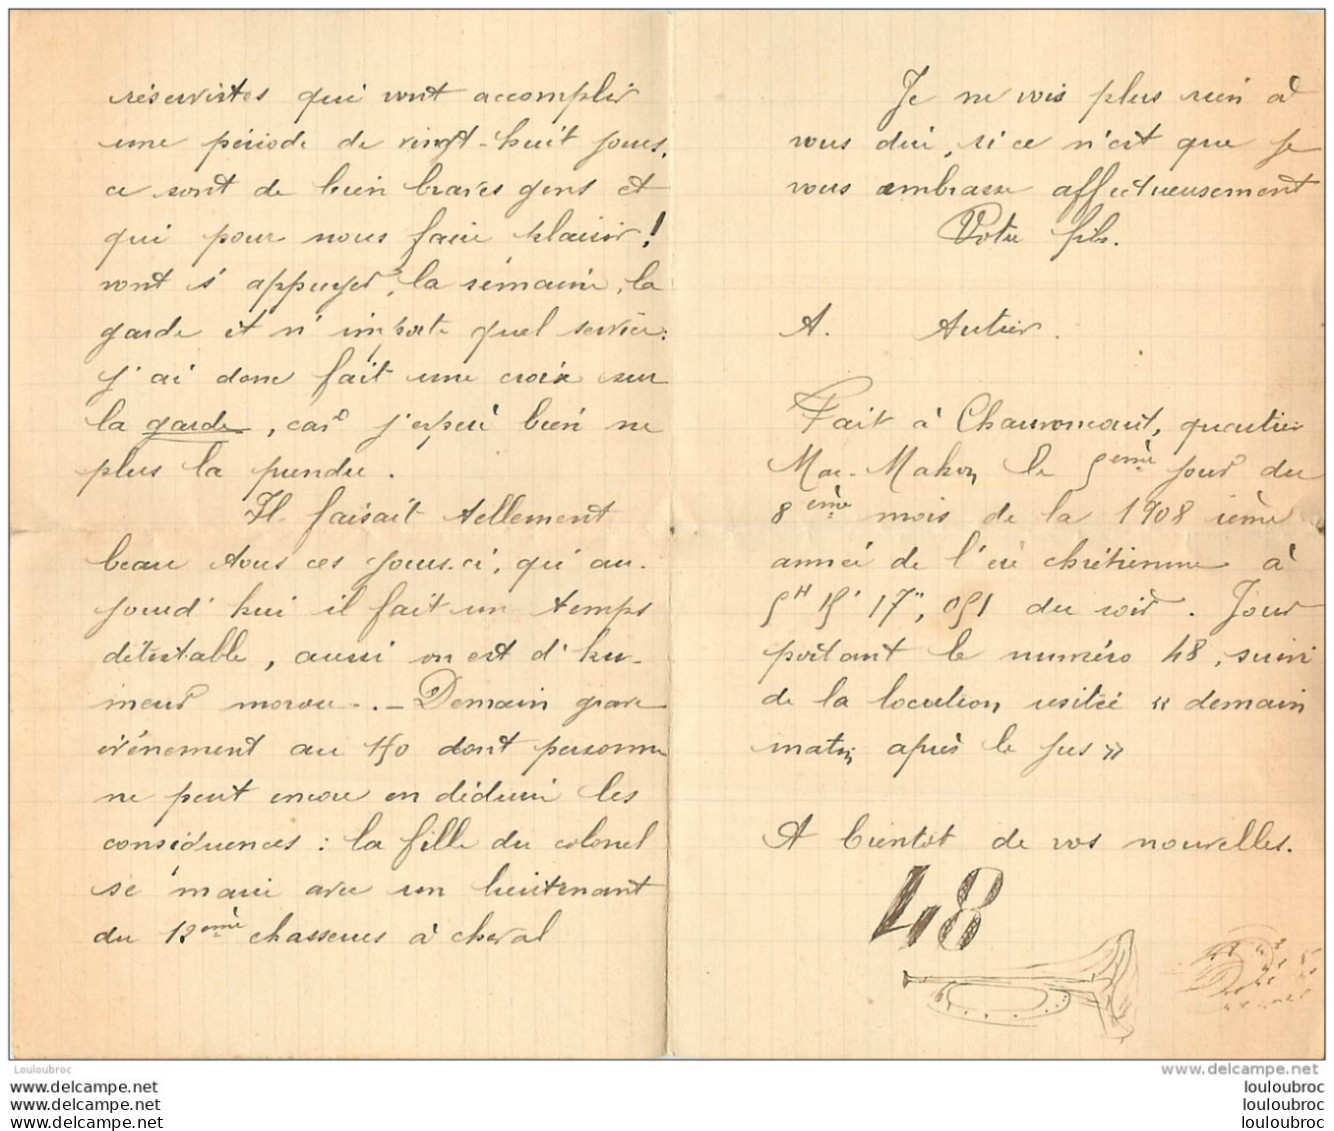 réservistes qui vont accomplir
une période de vingt-huit jours,
ce sont de bien braves gens et
qui pour nous faire plaisir!
vont s'appuyer, la semaine, la
garde et n'importe quel service:
j'ai donc fait une croix sur
la garde, car j'espère bien ne
plus la prendre.
Il faisait tellement
beau tous ces jours-ci, qu'au-
jourd'hui il fait un temps
détestable, aussi on est d'hu-
meur morose. - Demain grave
événement au 150 dont personne
ne peut encore en déduire les
conséquences : la fille du colonel
se marie avec un lieutenant
du 12ème chasseurs à cheval
Je ne vois plus rien à
vous dire, si ce n'est que je
vous embrasse affectueusement
Votre fils.
A. Autier.
Fait à Chauvoncourt, quartier
Mac-Mahon le 5ème jour du
8ème mois de la 1908 ième
année de l'ère chrétienne à
5H 15' 17", 051 du soir. Jour
portant le numéro 48, suivi
de la locution usitée « demain
matin après le jus »
A bientôt de vos nouvelles.
48
Louloubroc
www.delcampe.net
www.delcampe.net
www.delcampe.net
www.delcampe.net
louloubroc
louloubroc
louloubroc